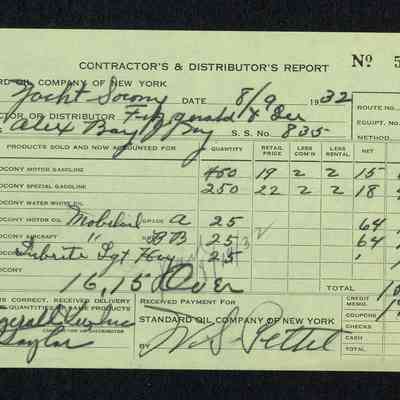 CONTRACTOR'S & DISTRIBUTOR'S REPORT Nº 5
RD OIL COMPANY OF NEW YORK
Yacht Socony DATE 8/9 1932
ROUTE NO.
CTOR OR DISTRIBUTOR Fitzgerald & Lee
EQUIPT. NO.
Alex Bay NY S. S. No. 835
METHOD
PRODUCTS SOLD AND NOW ANOTHER: QUANTITY RETAIL PRICE LESS COM'N LESS RENTAL NET
SOCONY MOTOR GASOLINE 450 19 2 2 15
SOCONY SPECIAL GASOLINE 250 22 2 2 18
SOCONY WATER WHITE OIL
SOCONY MOTOR OIL Mobiloil GRADE A 25 64
SOCONY AIRCRAFT " BB 25 64
Lubrite Lgt Hvy 25 "
SOCONY
16,15 Over TOTAL
IS CORRECT, RECEIVED DELIVERY
QUANTITIES OF SAME PRODUCTS
RECEIVED PAYMENT FOR
STANDARD OIL COMPANY OF NEW YORK
CREDIT MEMO.
COUPONS
CHECKS
CASH
TOTAL
BY